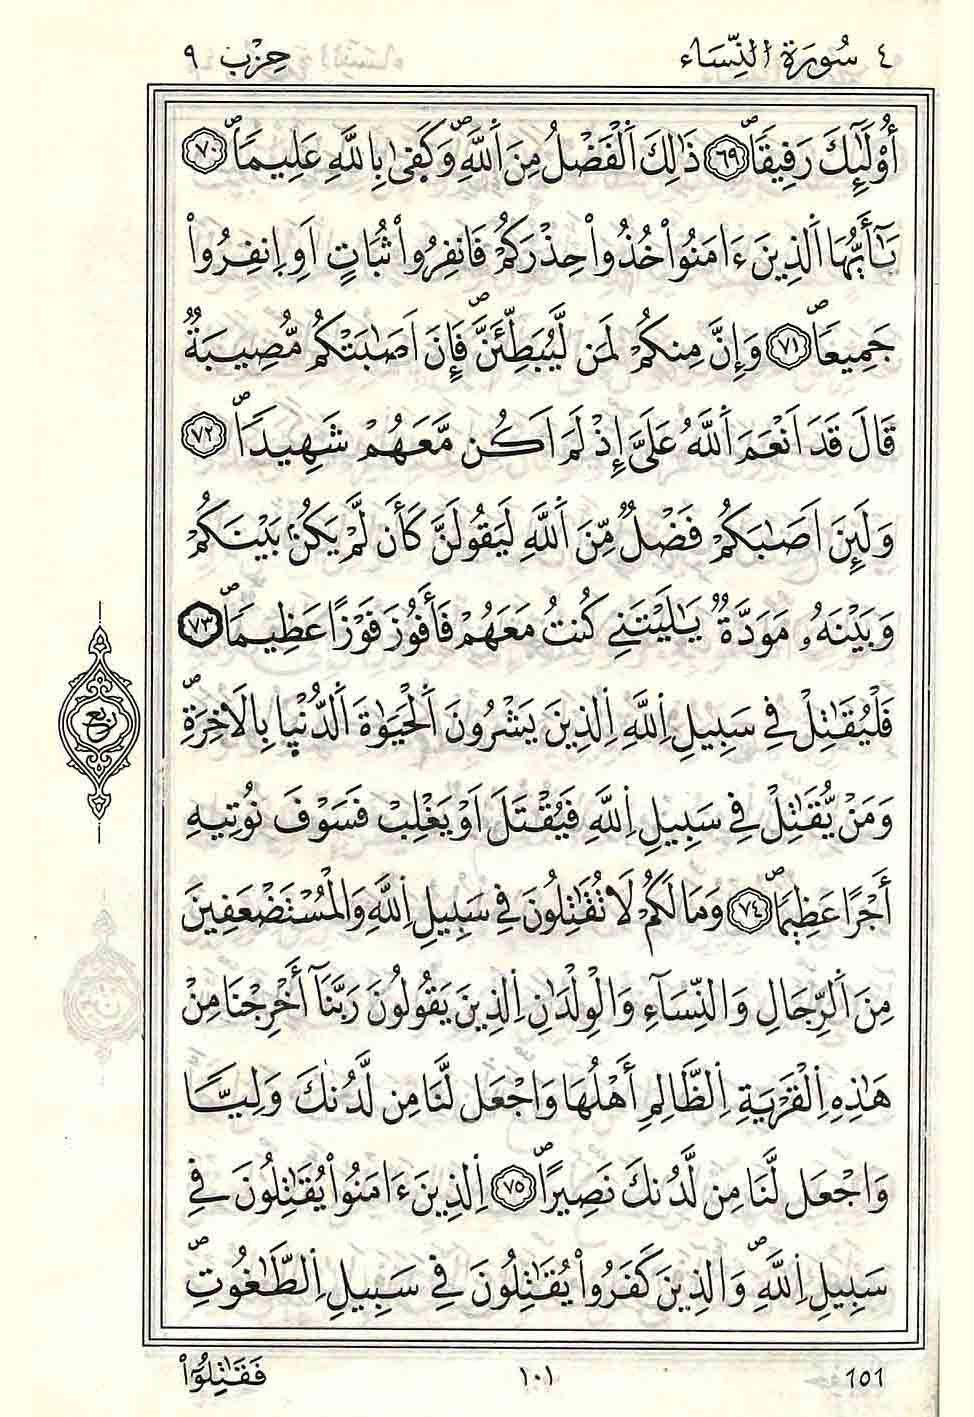 ٤ سُورَةُ اُلنِّسَاء حِزْب ٩
أُوْلَٰٓئِكَ رَفِيقاٗۖ ٦٩ ذَٰلِكَ اَ۬لْفَضْلُ مِنَ اَ۬للَّهِۖ وَكَف۪ىٰ بِاللَّهِ عَلِيماٗۖ ٧٠
يَٰٓأَيُّهَا اَ۬لذِينَ ءَامَنُواْ خُذُواْ حِذْرَكُمْ فَانفِرُواْ ثُبَاتٍ اَوِ اِ۪نفِرُواْ
جَمِيعاٗۖ ٧١ وَإِنَّ مِنكُمْ لَمَن لَّيُبَطِّئَنَّۖ فَإِنَ اَصَٰبَتْكُم مُّصِيبَةٞ
قَالَ قَدَ اَنْعَمَ اَ۬للَّهُ عَلَيَّ إِذْ لَمَ اَكُن مَّعَهُمْ شَهِيداٗۖ ٧٢
وَلَئِنَ اَصَٰبَكُمْ فَضْلٞ مِّنَ اَ۬للَّهِ لَيَقُولَنَّ كَأَن لَّمْ يَكُنۢ بَيْنَكُمْ
وَبَيْنَهُۥ مَوَدَّةٞ يَٰلَيْتَنِے كُنتُ مَعَهُمْ فَأَفُوزَ فَوْزاً عَظِيماٗۖ ٧٣
ربع
فَلْيُقَٰتِلْ فِے سِبِيلِ اِ۬للَّهِ اِ۬لذِينَ يَشْرُونَ اَ۬لْحَيَوٰةَ اَ۬لدُّنْي۪ا بِالَاخِرَةِۖ
وَمَنْ يُّقَٰتِلْ فِے سَبِيلِ اِ۬للَّهِ فَيُقْتَلَ اَوْ يَغْلِبْ فَسَوْفَ نُوتِيهِ
أَجْراً عَظِيماٗۖ ٧٤ وَمَا لَكُمْ لَا تُقَٰتِلُونَ فِے سَبِيلِ اِ۬للَّهِ وَالْمُسْتَضْعَفِينَ
مِنَ اَ۬لرِّجَالِ وَالنِّسَآءِ وَالْوِلْدَٰنِ اِ۬لذِينَ يَقُولُونَ رَبَّنَآ أَخْرِجْنَا مِنْ
هَٰذِهِ اِ۬لْقَرْيَةِ اِ۬لظَّالِمِ أَهْلُهَا وَاجْعَل لَّنَا مِن لَّدُنكَ وَلِيّاٗ
وَاجْعَل لَّنَا مِن لَّدُنكَ نَصِيراًۖ ٧٥ اِ۬لذِينَ ءَامَنُواْ يُقَٰتِلُونَ فِے
سَبِيلِ اِ۬للَّهِۖ وَالذِينَ كَفَرُواْ يُقَٰتِلُونَ فِے سَبِيلِ اِ۬لطَّٰغُوتِۖ
101 ١٠١ فَقَٰتِلُوٓاْ